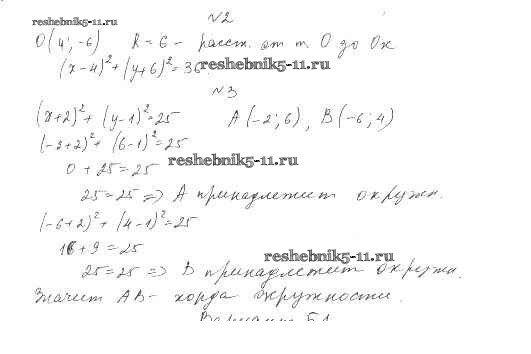 №2
reshebnik5-11.ru
O(4; -6) R = 6 - расст. от т. О до Ох
(x-4)²+(y+6)²=36 reshebnik5-11.ru
№3
(x+2)²+(y-1)²=25 A(-2; 6), B(-6; 4)
(-2+2)²+(6-1)²=25
0+25=25 reshebnik5-11.ru
25=25 => A принадлежит окружн.
(-6+2)²+(4-1)²=25
16+9=25 reshebnik5-11.ru
25=25 => B принадлежит окружн.
Значит AB- хорда окружности.
Вариант Б1